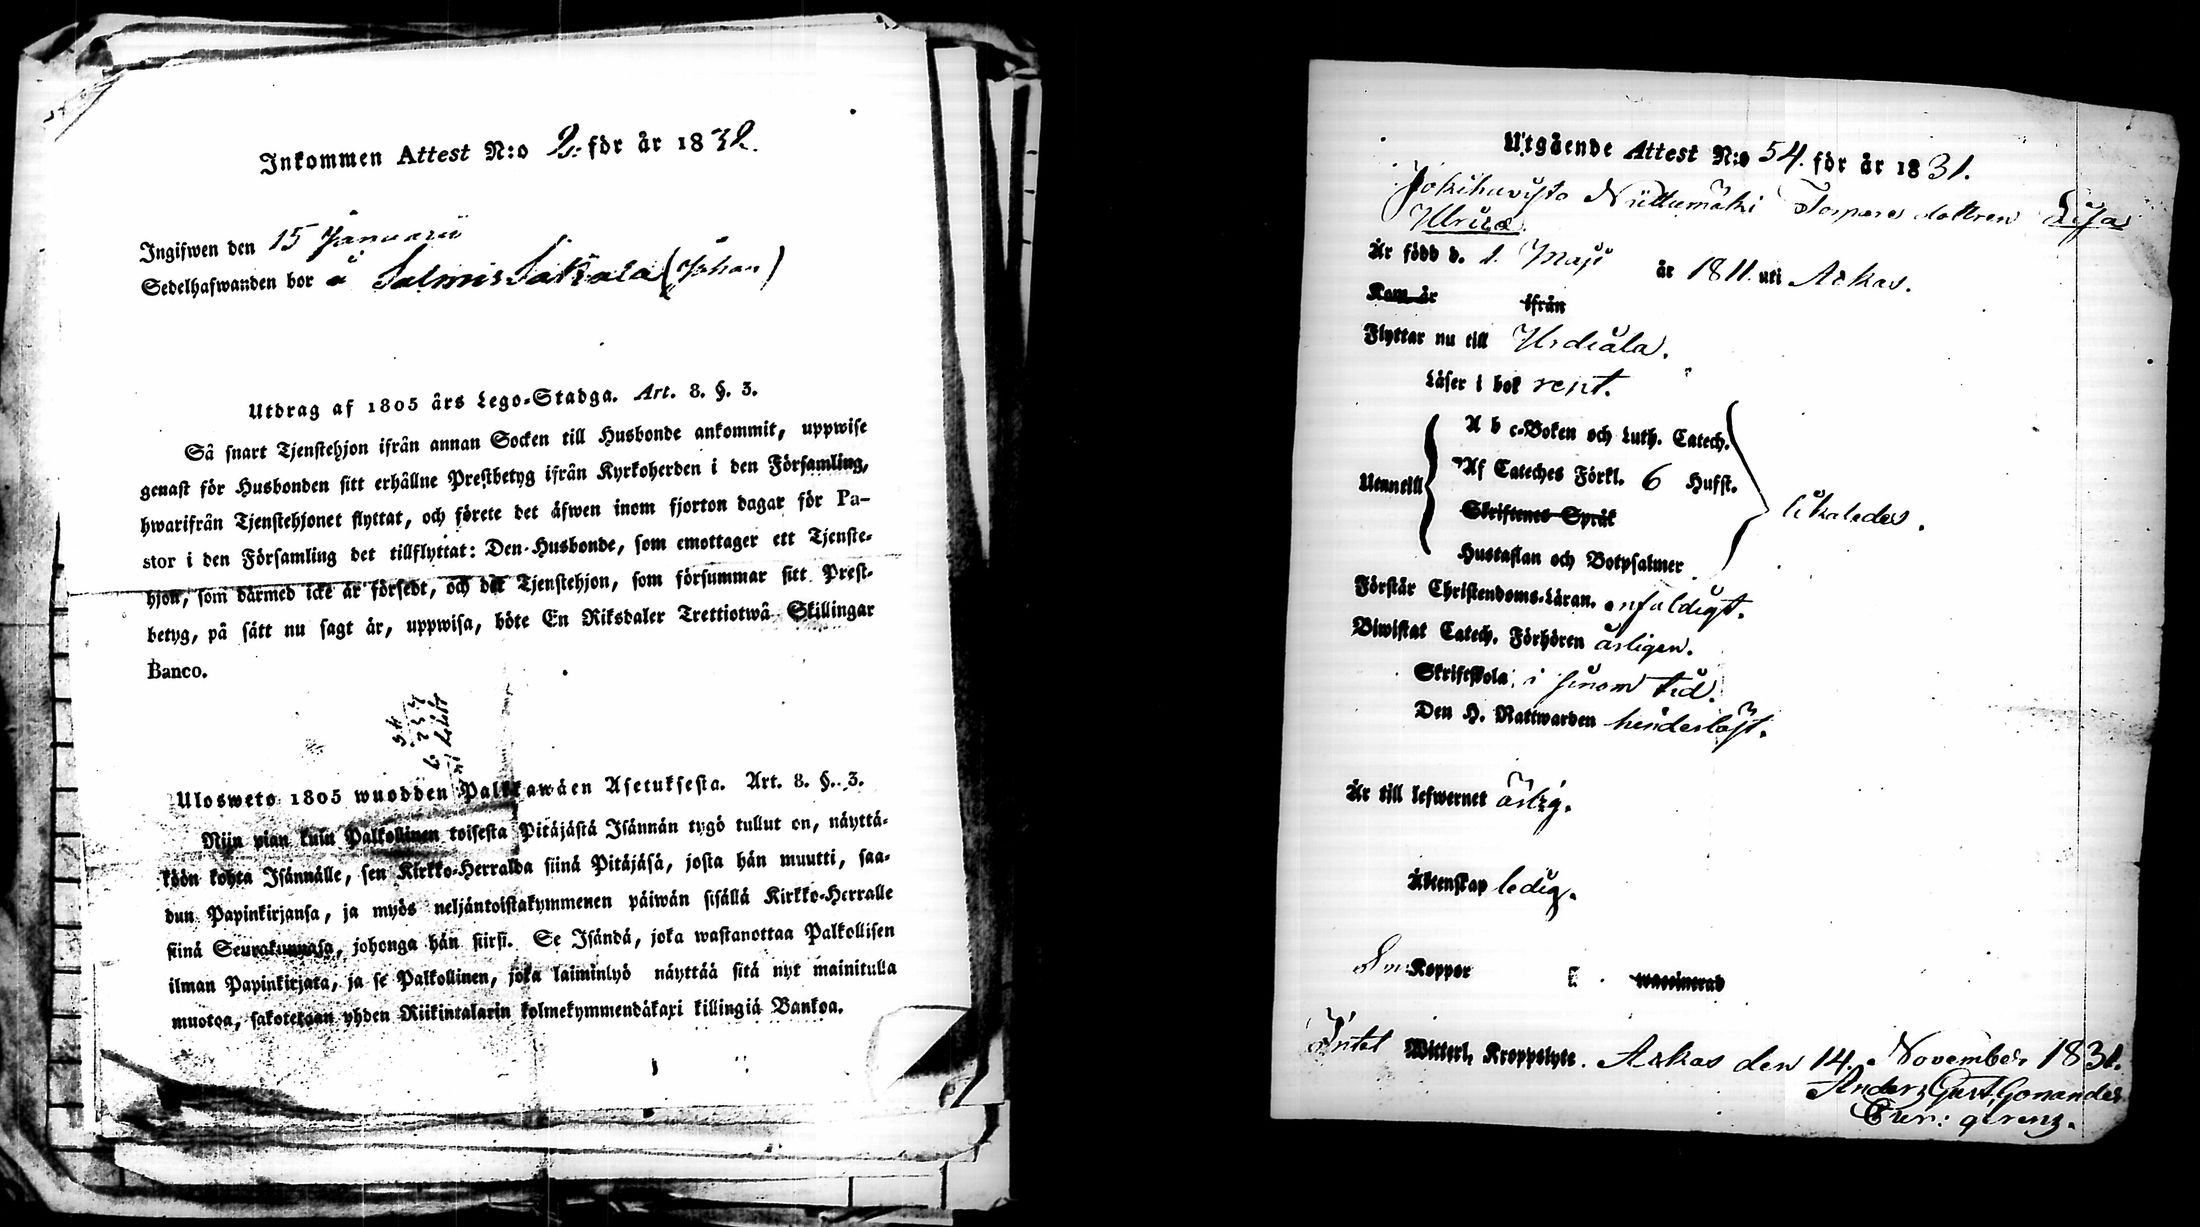 Inkommen Attest N:o 2: för år 1832.
Ingifwen den 15 Januarii
Sedelhafwanden bor å Salmis Sakala (Johan)
Utdrag af 1805 års Lego-Stadga. Art. 8. §. 3.
Så snart Tjenstehjon ifrån annan Socken till Husbonde ankommit, uppwise
genast för Husbonden sitt erhållne Prestbetyg ifrån Kyrkoherden i den Församling,
hwarifrån Tjenstehjonet flyttat, och förete det äfwen inom fjorton dagar för Pa-
stor i den Församling det tillflyttat: Den Husbonde, som emottager ett Tjenste-
hjon, som därmed icke är försedt, och det Tjenstehjon, som försummar sitt Prest-
betyg, på sätt nu sagt är, uppwisa, böte En Riksdaler Trettiotwå Skillingar
Banco.
Ulosweto 1805 wuodden Palkkawäen Asetuksesta. Art. 8. §. 3.
Niin pian kuin Palkollinen toisesta Pitäjästä Isännän tygö tullut on, näyttä-
köön kohta Isännälle, sen Kirkko-Herralda siinä Pitäjäsä, josta hän muutti, saa-
dun Papinkirjansa, ja myös neljäntoistakymmenen päiwän sisällä Kirkko-Herralle
siinä Seurakunnasa, johonga hän siirsi. Se Isändä, joka wastanottaa Palkollisen
ilman Papinkirjata, ja se Palkollinen, joka laiminlyö näyttää sitä nyt mainitulla
muotoa, sakotetaan yhden Riikintalarin kolmekymmendäkaxi killingiä Bankoa.
Utgående Attest N:o 54. för år 1831.
Jokihavisto Torpare dottren Lisa
Ulrica
Är född d. 1. Maji år 1811. uti Askas.
Kom år ifrån
Flyttar nu till Urdiala.
Läser i bok rent.
A b c-Boken och Luth. Catech.
Af Cateches Förkl. 6 Hufst.
Utantill likaledes.
Skriftenes Språk
Hustaflan och Botpsalmer
Förstår Christendoms-Läran. enfaldigt.
Biwistat Catech. Förhören årligen.
Skriftskola i sinom tid.
Den H. Nattwarden hinderlöst.
Är till lefwernet ärlig.
Äktenskap ledig.
Koppor waccinerad
Intet Witterl. Kroppslyte. Askas den 14. November 1831.
Anders Gust. Gonander
Cur: gerens.